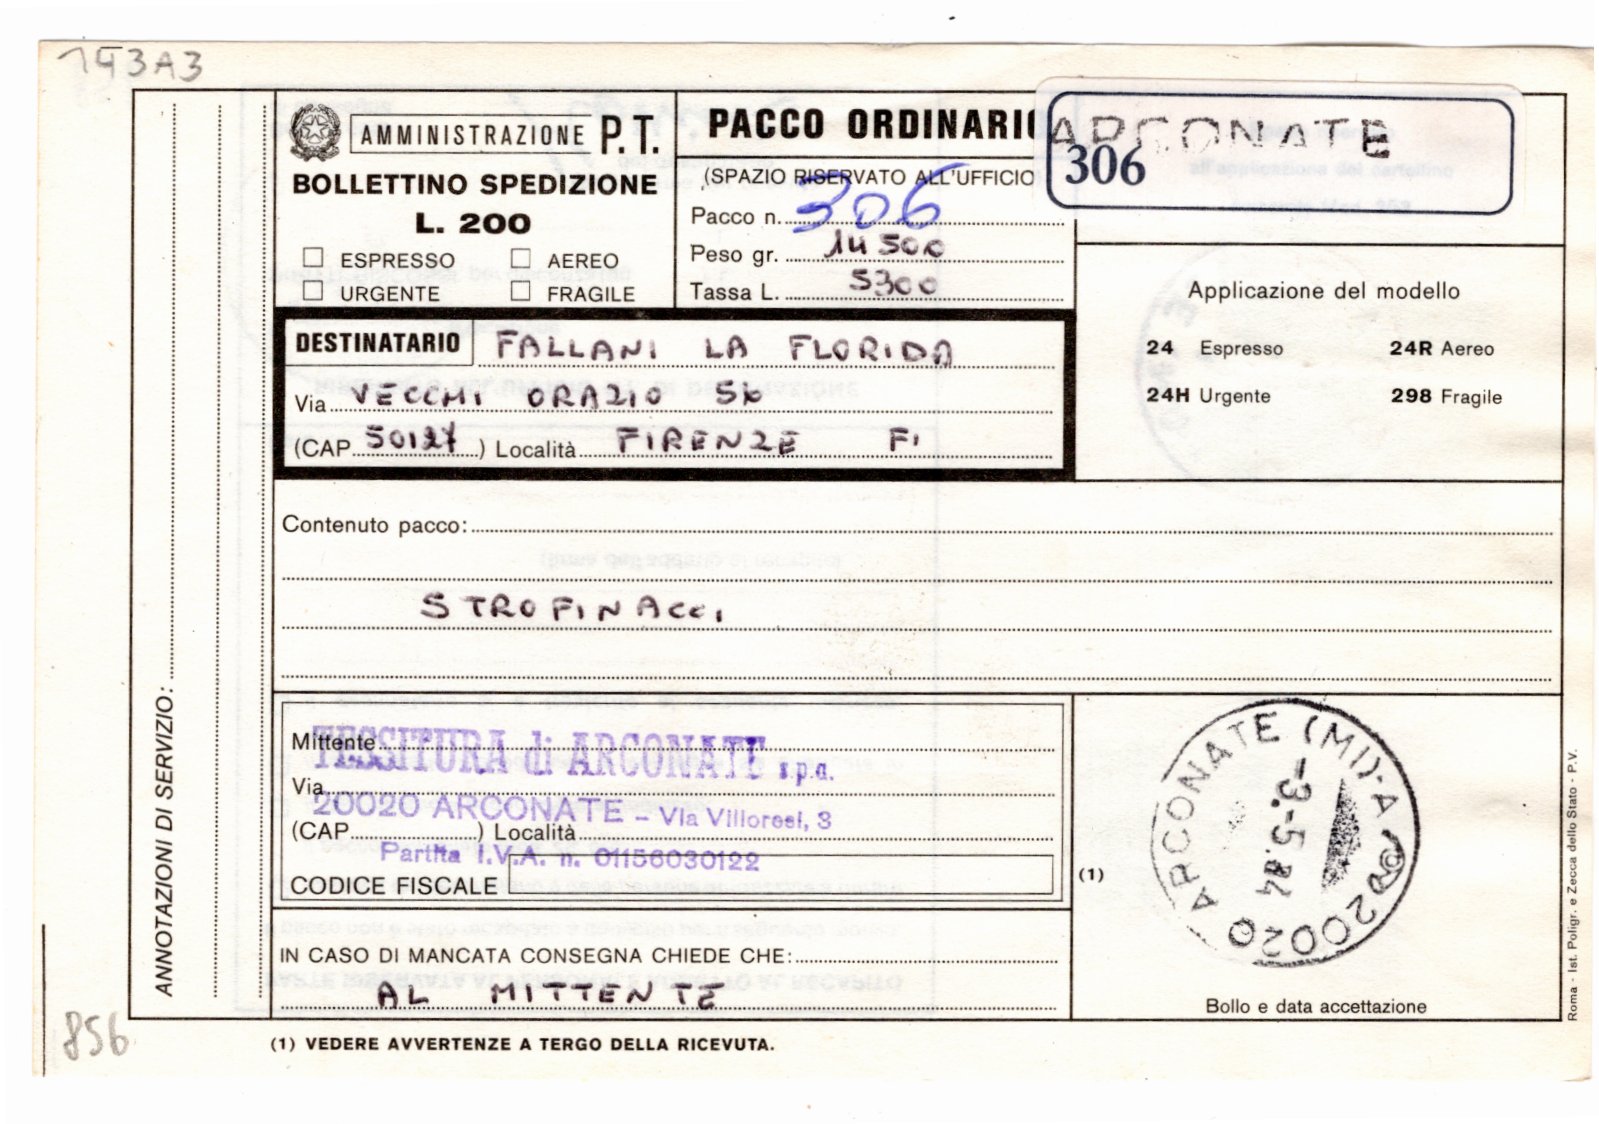 143A3
AMMINISTRAZIONE P.T.
BOLLETTINO SPEDIZIONE
L. 200
ESPRESSO
AEREO
URGENTE
FRAGILE
PACCO ORDINARIO
(SPAZIO RISERVATO ALL'UFFICIO
Pacco n. 306
Peso gr. 14500
Tassa L. 5300
ARCONATE
306
Applicazione del modello
24 Espresso
24R Aereo
24H Urgente
298 Fragile
DESTINATARIO FALLANI LA FLORIDA
Via VECCHI ORAZIO
(CAP 50127) Località FIRENZE FI
Contenuto pacco:
STROFINACCI
ANNOTAZIONI DI SERVIZIO:
Mittente
TESSITURA di ARCONATE s.p.a.
Via
20020 ARCONATE - Via Villoresi, 3
(CAP ) Località
Partita I.V.A. n. 01156030122
CODICE FISCALE
(1)
ARCONATE (MI)·A
-3.-5.84
20020 ARCONATE
Bollo e data accettazione
IN CASO DI MANCATA CONSEGNA CHIEDE CHE:
AL MITTENTE
(1) VEDERE AVVERTENZE A TERGO DELLA RICEVUTA.
856
Roma - Ist. Poligr. e Zecca dello Stato - P.V.